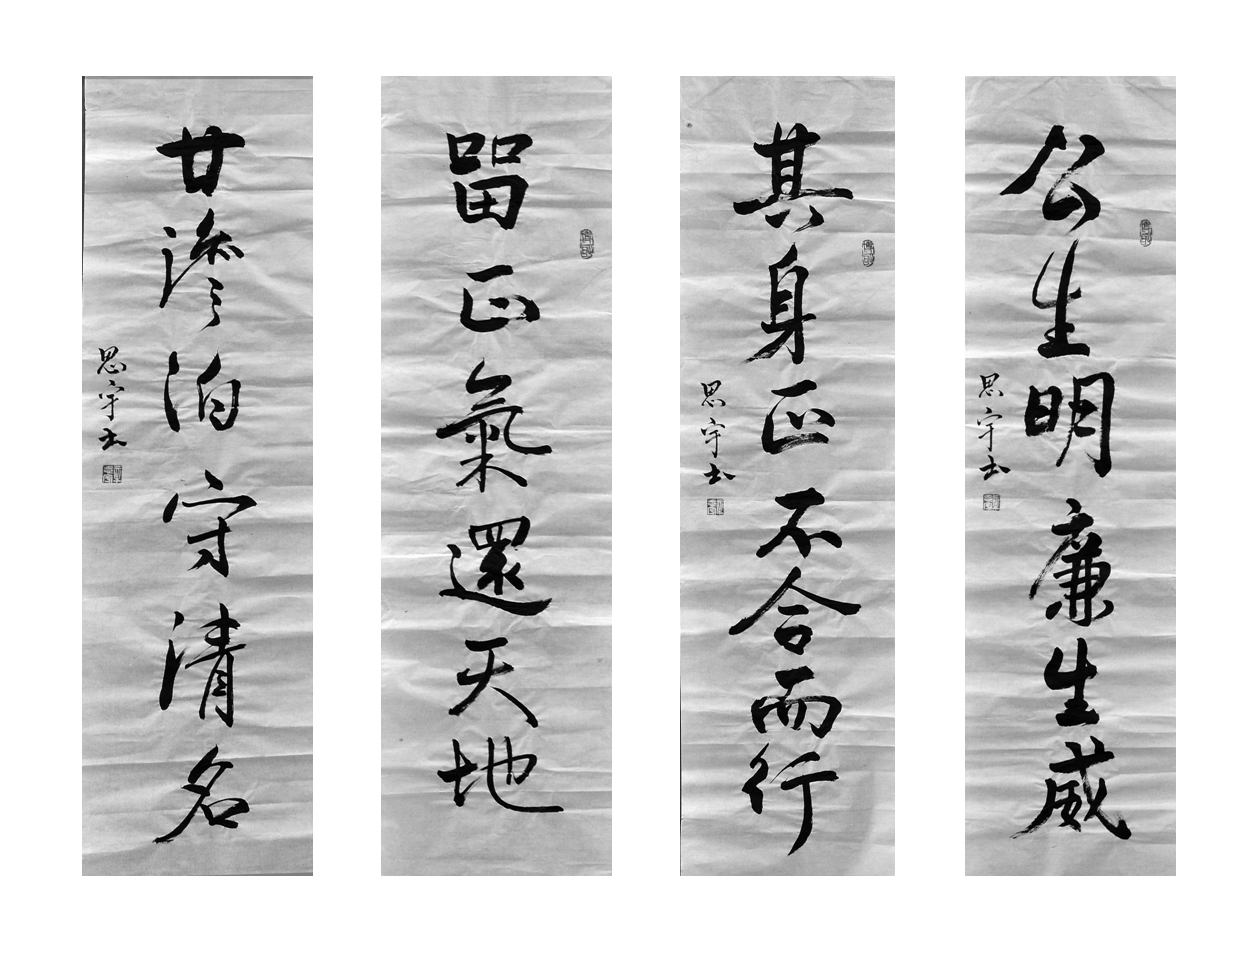 公生明廉生威
思宇书
其身正不合而行
思宇书
留正氣還天地
廿澹泊守清名
思宇书